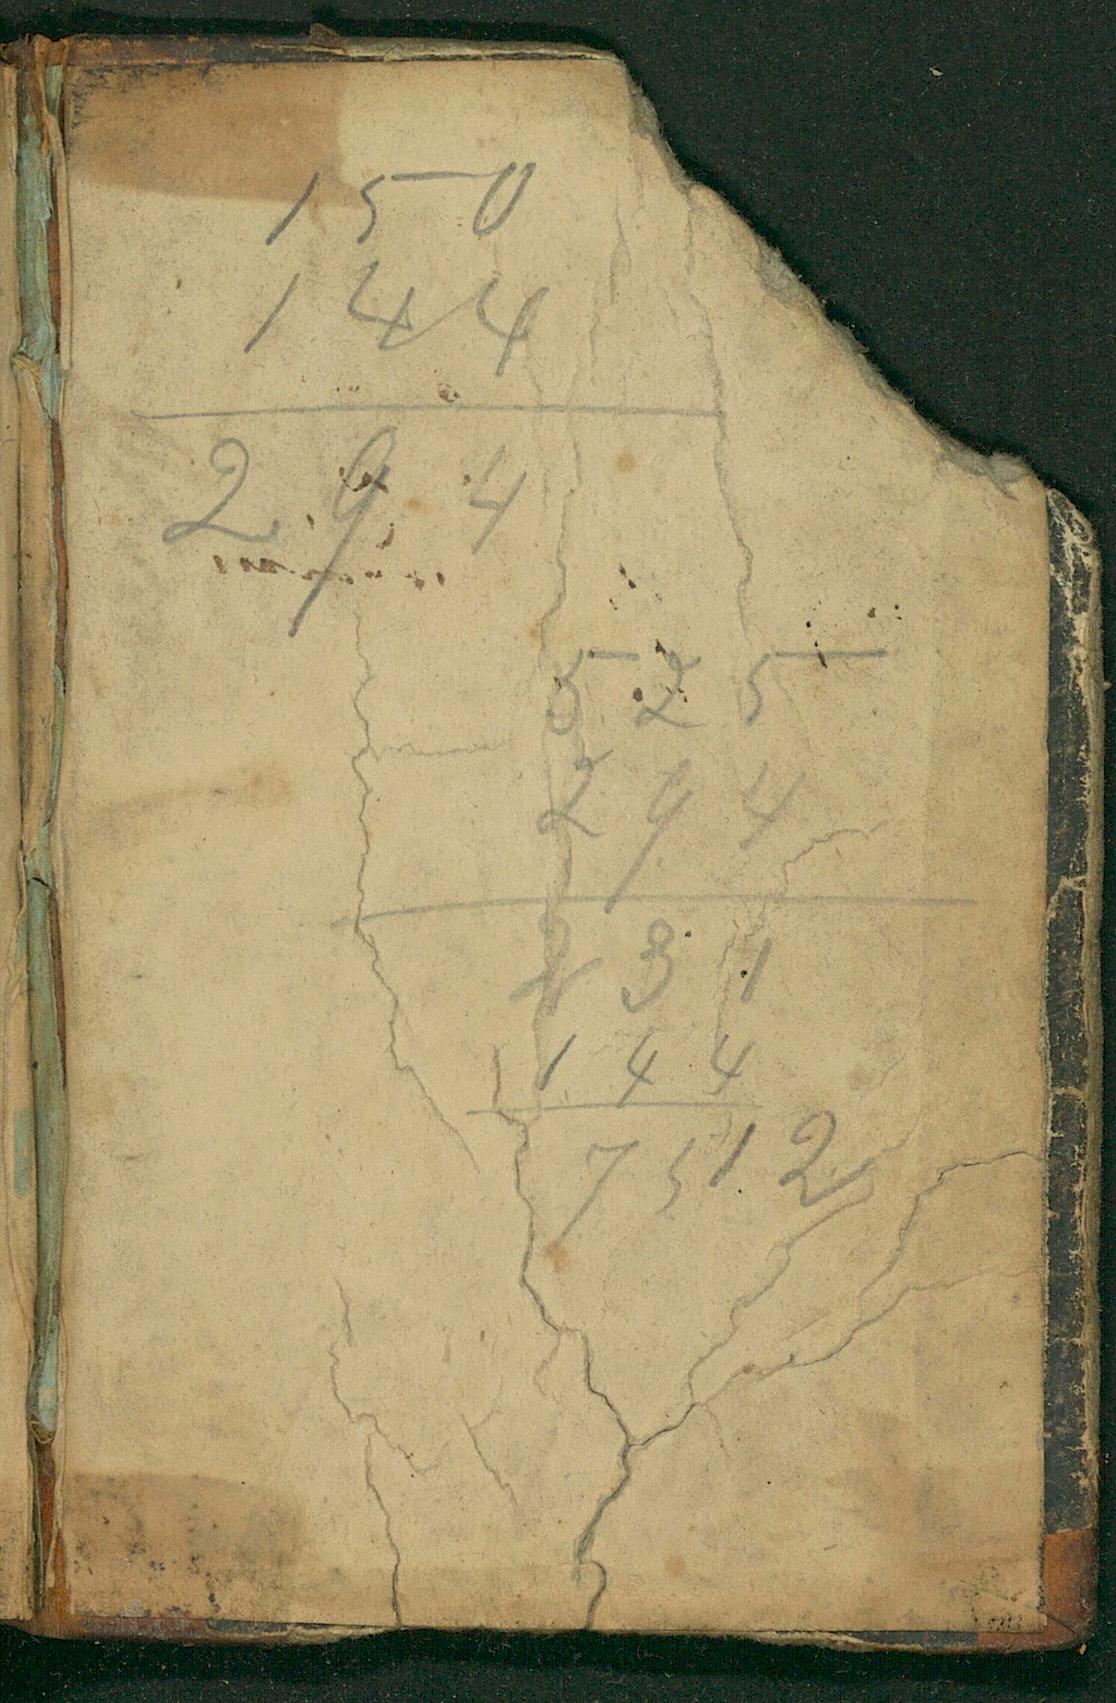 150
144
294
525
294
231
144
7512